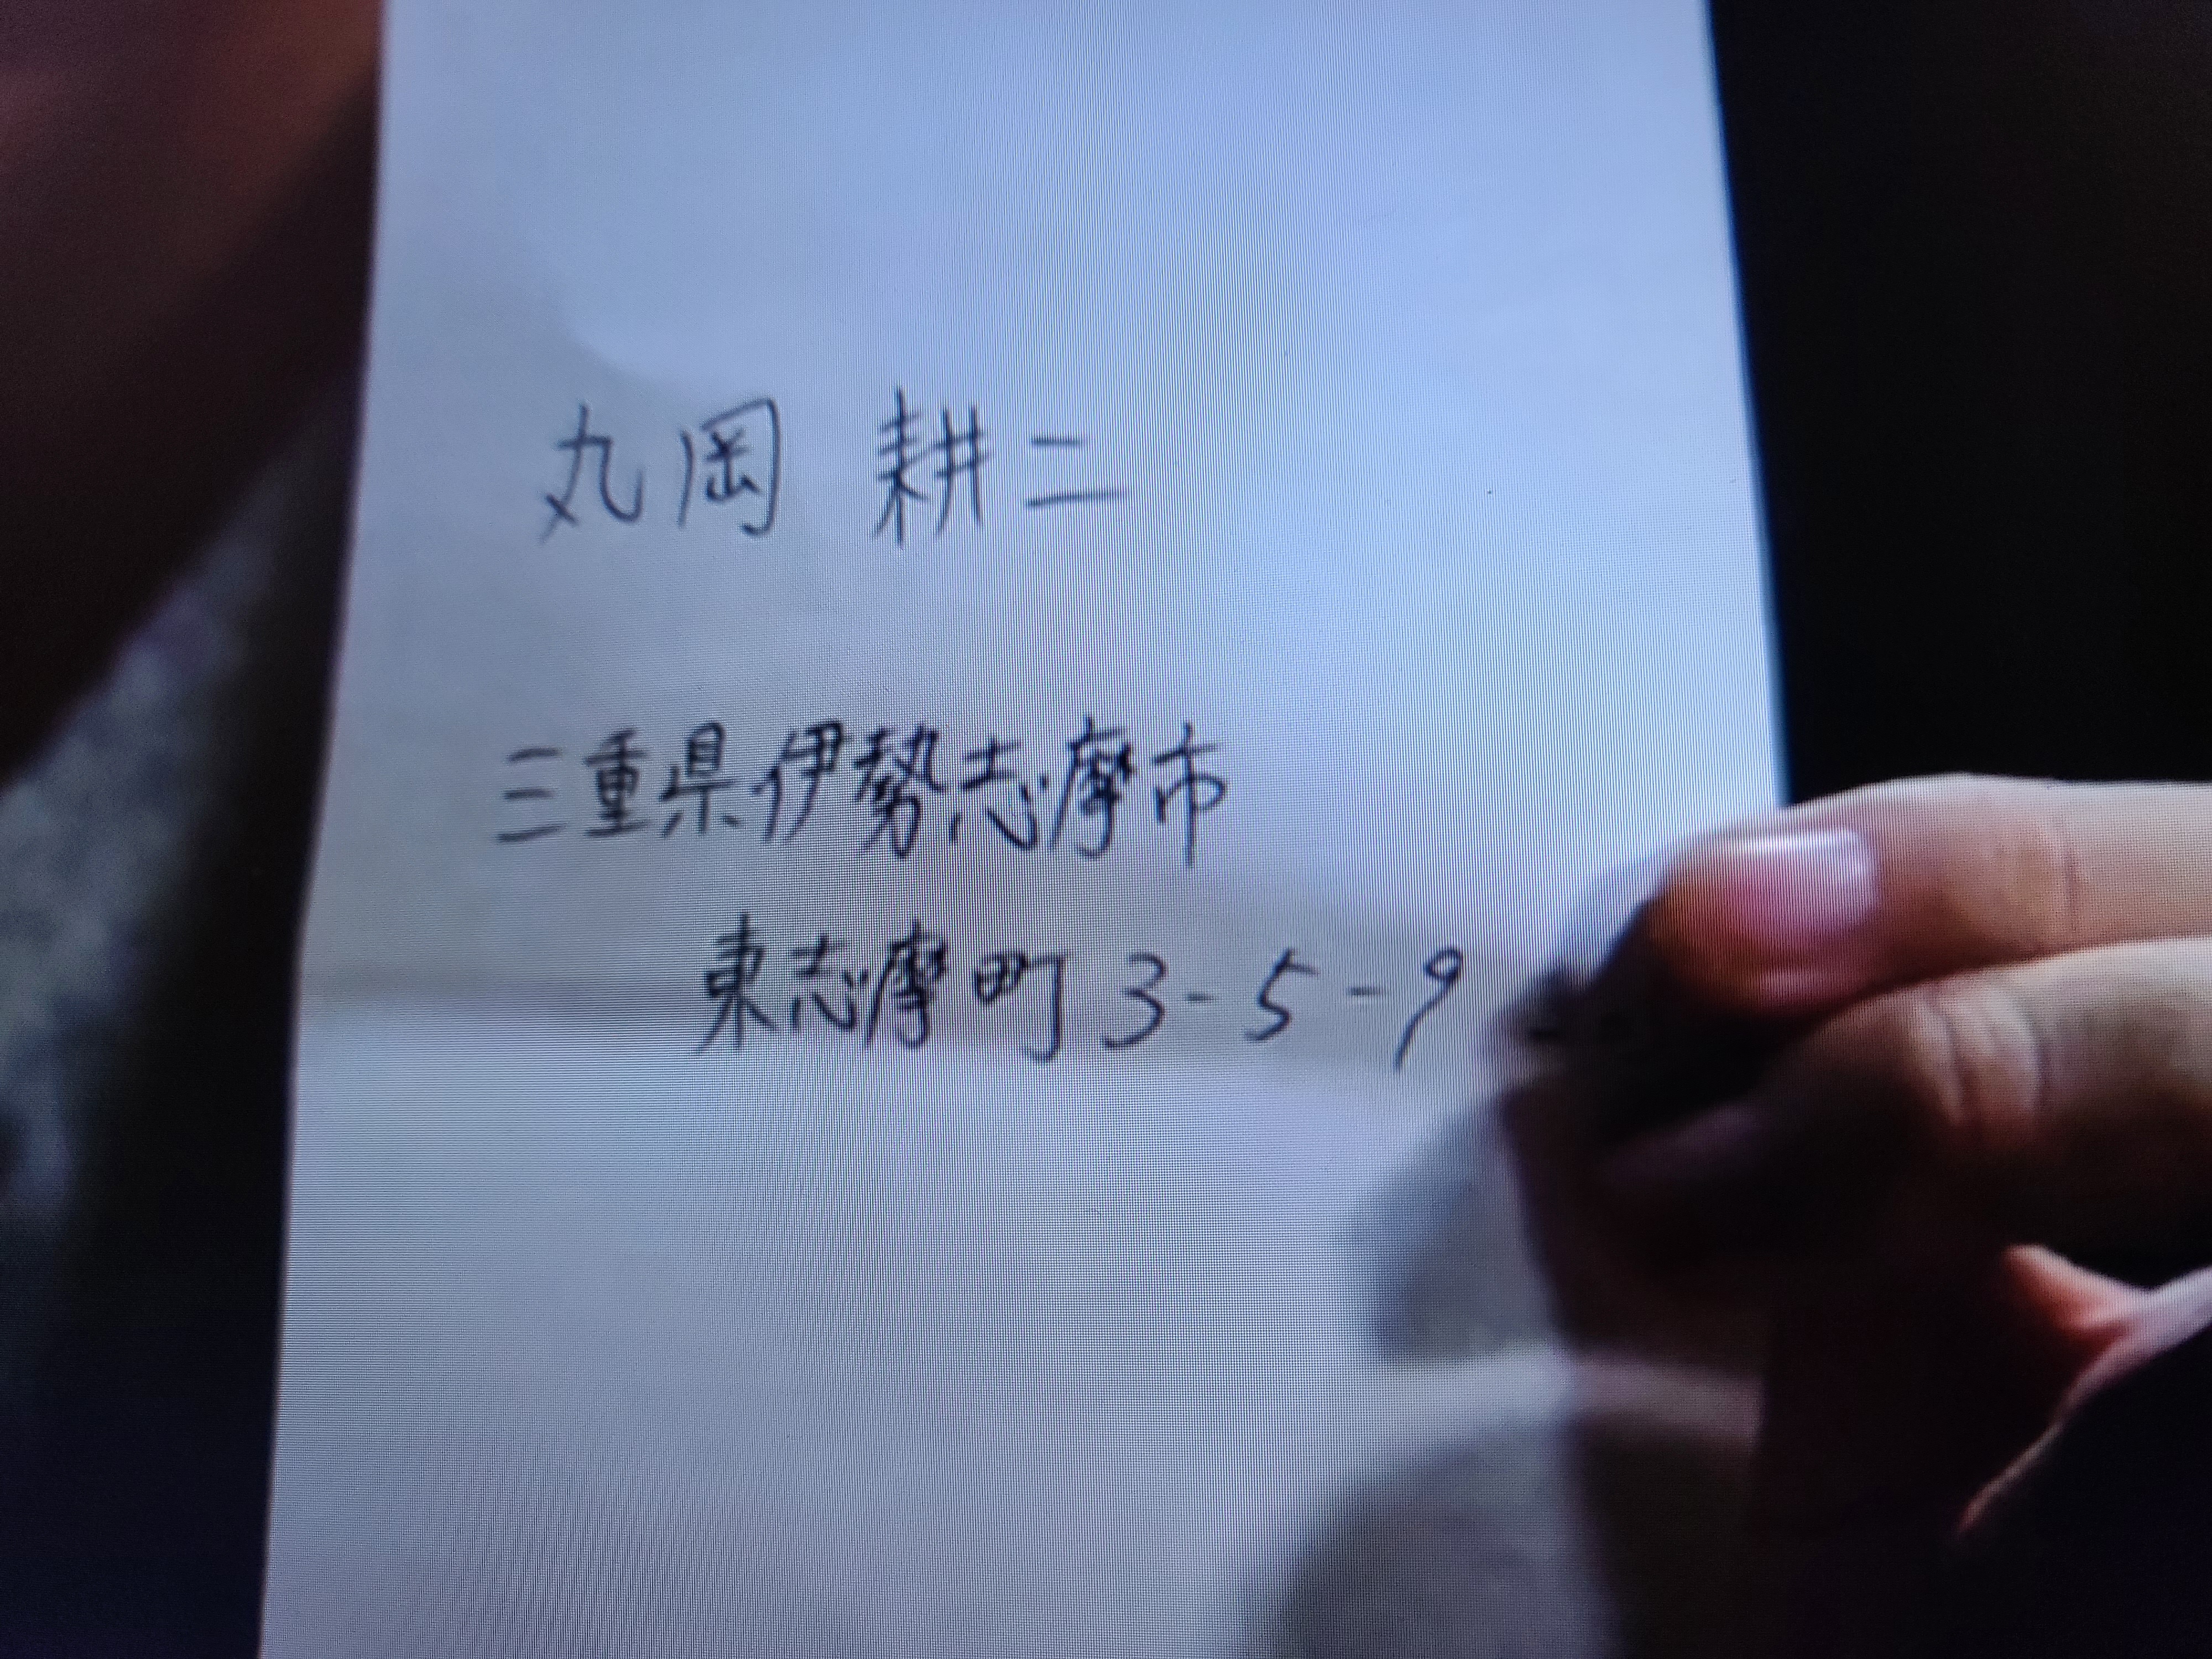 丸岡 耕二
三重県伊勢志摩市
東志摩町3-5-9